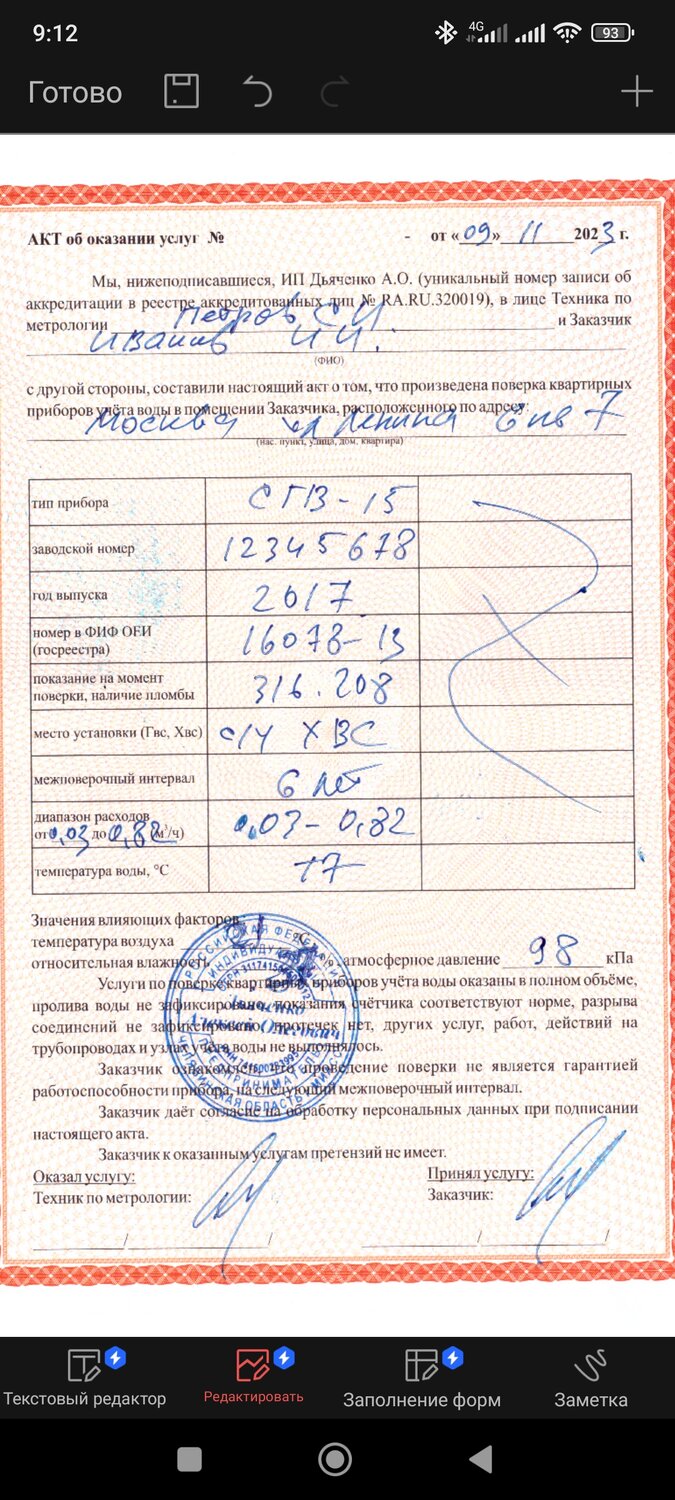 9:12
4G
93
Готово
АКТ об оказании услуг № - от «09» 11 2023 г.
Мы, нижеподписавшиеся, ИП Дьяченко А.О. (уникальный номер записи об
аккредитации в реестре аккредитованных лиц № RA.RU.320019), в лице Техника по
метрологии Петров С И и Заказчик
Иванов И И.
(ФИО)
с другой стороны, составили настоящий акт о том, что произведена поверка квартирных
приборов учёта воды в помещении Заказчика, расположенного по адресу:
Москва ул Ленина 6 кв 7
(нас. пункт, улица, дом, квартира)
тип прибора СГВ-15
заводской номер 12345678
год выпуска 2017
номер в ФИФ ОЕИ 16078-13
(госреестра)
показание на момент 316.208
поверки, наличие пломбы
место установки (Гвс, Хвс) с/у ХВС
межповерочный интервал 6 лет
диапазон расходов 0,03-0,82
от 0,03 до 0,82 (м³/ч)
температура воды, °С 17
Значения влияющих факторов
температура воздуха 21 °С
относительная влажность %, атмосферное давление 98 кПа
Услуги по поверке квартирных приборов учёта воды оказаны в полном объёме,
пролива воды не зафиксировано, показания счётчика соответствуют норме, разрыва
соединений не зафиксировано, протечек нет, других услуг, работ, действий на
трубопроводах и узлах учёта воды не выполнялось.
Заказчик ознакомлен, что проведение поверки не является гарантией
работоспособности прибора, на следующий межповерочный интервал.
Заказчик даёт согласие на обработку персональных данных при подписании
настоящего акта.
Заказчик к оказанным услугам претензий не имеет.
Оказал услугу: Принял услугу:
Техник по метрологии: Заказчик:
/ / / /
РОССИЙСКАЯ ФЕДЕРАЦИЯ
ИНДИВИДУАЛЬНЫЙ
Дьяченко
Алексей Олегович
ПРЕДПРИНИМАТЕЛЬ
ЧЕЛЯБИНСКАЯ ОБЛАСТЬ, МИАСС
Текстовый редактор
Редактировать
Заполнение форм
Заметка